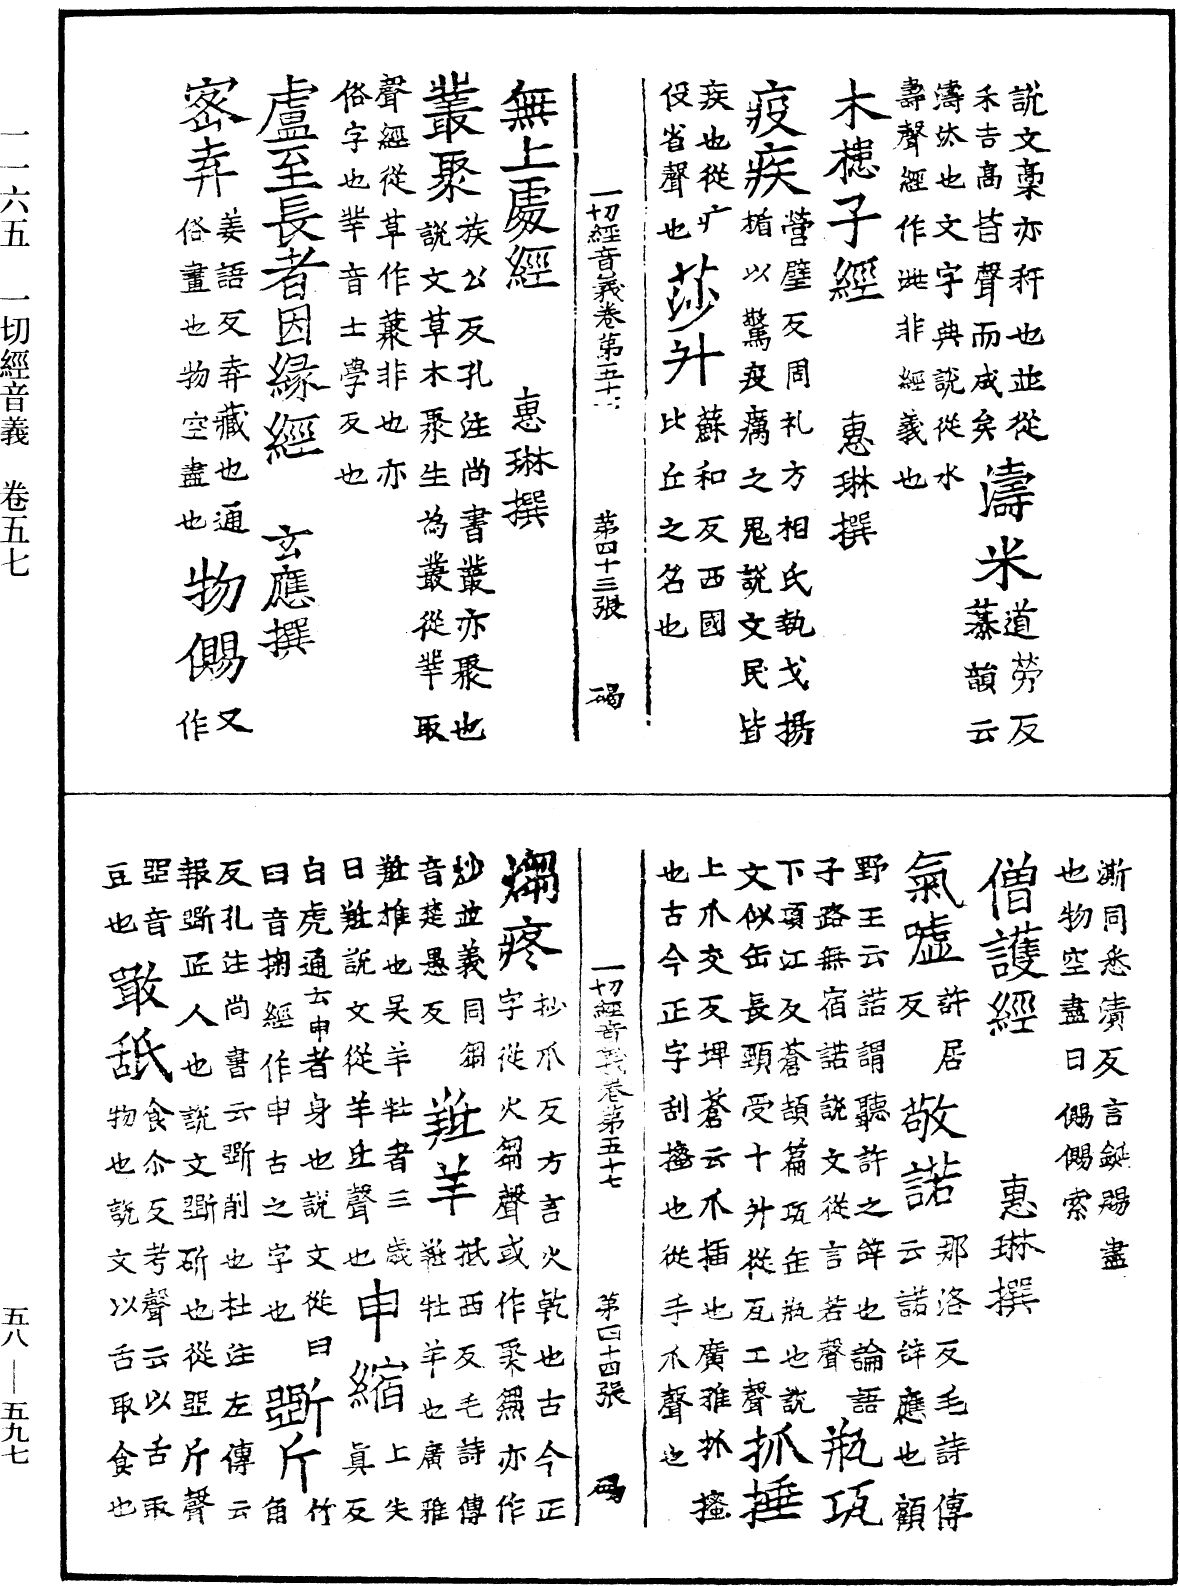 說文稾亦秆也並從
禾吉高皆聲而成矣
濤米
道勞反
蓁韻云
濤汰也文字典說從水
壽聲經作洮非經義也
木槵子經
惠琳撰
疫疾
營壁反周礼方相氏執戈揚
楯以驚疫癘之鬼說文民皆
疾也從疒
役省聲也
莎升
蘇和反西國
比丘之名也
一切經音義卷第五十七
第四十三張
碣
無上處經
惠琳撰
叢聚
族公反孔注尚書叢亦聚也
說文草木聚生為叢從丵取
聲經從草作藂非也亦
俗字也丵音士學反也
盧至長者因緣經
玄應撰
密弆
姜語反弆藏也通
俗畫也物空盡也
物㒆
又
作
澌同悉漬反言鋋賜盡
也物空盡曰㒆㒆索
僧護經
惠琳撰
氣噓
許居
反
敬諾
那洛反毛詩傳
云諾辝應也顧
野王云諾謂聽許之辝也論語
子路無宿諾說文從言若聲
瓶項
下項江反蒼頡篇項缶瓶也說
文似缶長頸受十升從瓦工聲
抓捶
上爪交反埤蒼云爪插也廣雅抓搔
也古今正字刮搔也從手爪聲也
一切經音義卷第五十七
第四十四張
碣
㷌疼
抄爪反方言火乾也古今正
字從火芻聲或作聚䵵亦作
炒並義同芻
音楚愚反
羝羊
抵西反毛詩傳
羝牡羊也廣雅
羝推也吳羊牡者三歲
曰羝說文從羊氐聲也
申縮
上失
真反
白虎通云申者身也說文從臼
曰音掬經作申古之字也
斲斤
竹
角
反孔注尚書云斲削也杜注左傳云
報斲匠人也說文斲斫也從𠁁斤聲
𠁁音
豆也
噉舐
食尒反考聲云以舌取
物也說文以舌取食也
一一六五
一切經音義
卷五七
五八—五九七